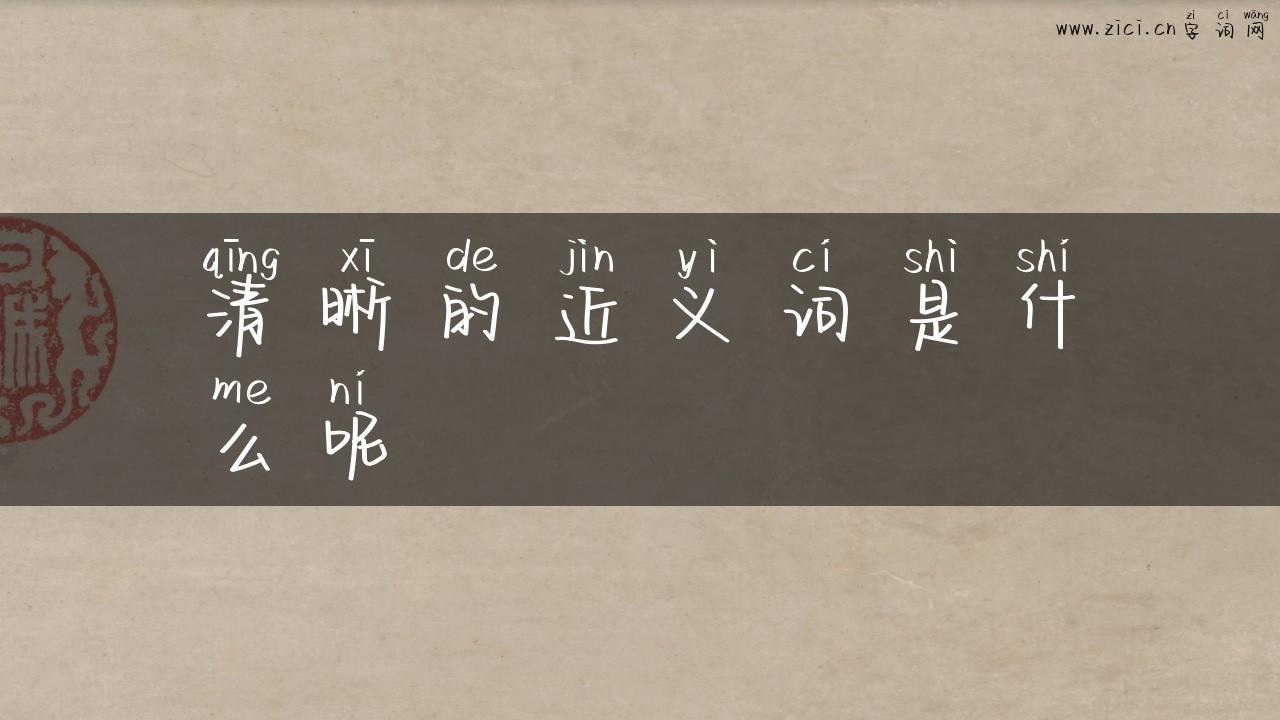 www.zici.cn
zì cí wǎng
字词网
qīng xī de jìn yì cí shì shí
清晰的近义词是什
me ní
么呢